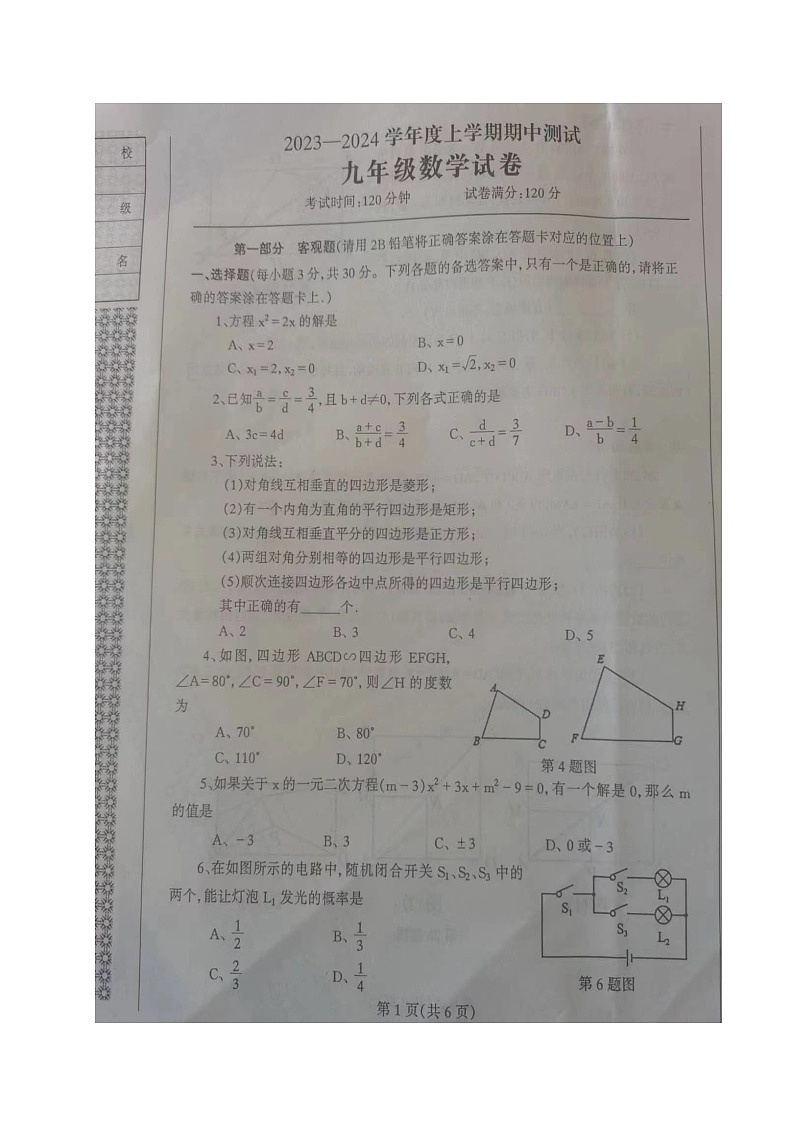 校
级
名
2023—2024学年度上学期期中测试
九年级数学试卷
考试时间:120分钟 试卷满分:120分
第一部分 客观题(请用2B铅笔将正确答案涂在答题卡对应的位置上)
一、选择题(每小题3分,共30分。下列各题的备选答案中,只有一个是正确的,请将正
确的答案涂在答题卡上.)
1、方程x²=2x的解是
A、x=2 B、x=0
C、x₁=2,x₂=0 D、x₁=√2,x₂=0
2、已知a/b=c/d=3/4,且b+d≠0,下列各式正确的是
A、3c=4d B、(a+c)/(b+d)=3/4 C、d/(c+d)=3/7 D、(a-b)/b=1/4
3、下列说法:
(1)对角线互相垂直的四边形是菱形;
(2)有一个内角为直角的平行四边形是矩形;
(3)对角线互相垂直平分的四边形是正方形;
(4)两组对角分别相等的四边形是平行四边形;
(5)顺次连接四边形各边中点所得的四边形是平行四边形;
其中正确的有____个.
A、2 B、3 C、4 D、5
4、如图,四边形ABCD∽四边形EFGH,
∠A=80°,∠C=90°,∠F=70°,则∠H的度数
为
A、70° B、80°
C、110° D、120°
A
B
C
D
E
F
G
H
第4题图
5、如果关于x的一元二次方程(m-3)x²+3x+m²-9=0,有一个解是0,那么m
的值是
A、-3 B、3 C、±3 D、0或-3
6、在如图所示的电路中,随机闭合开关S₁、S₂、S₃中的
两个,能让灯泡L₁发光的概率是
A、1/2 B、1/3
C、2/3 D、1/4
S₁
S₂
L₁
S₃
L₂
第6题图
第1页(共6页)